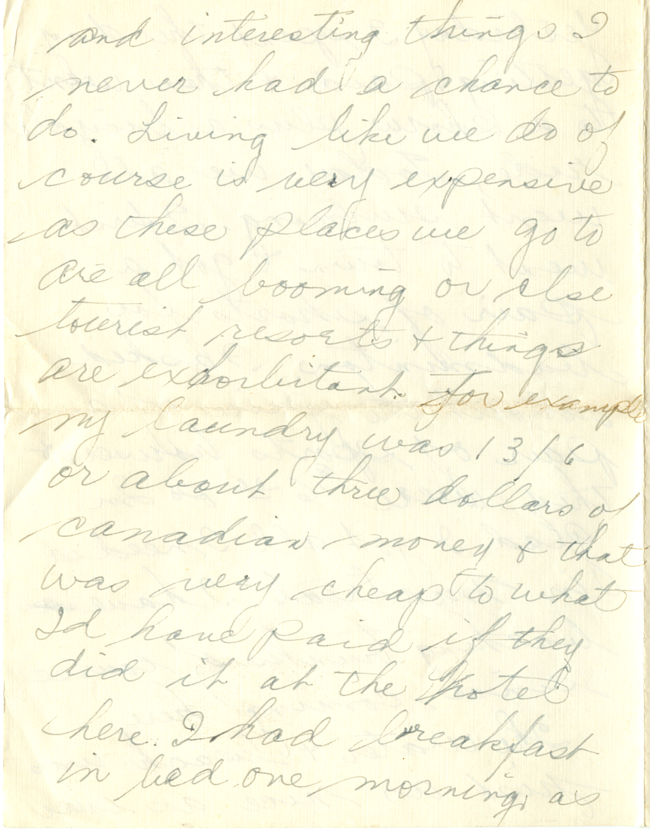 and interesting things I
never had a chance to
do. Living like we do of
course is very expensive
as these places we go to
are all booming or else
tourist resorts & things
are exhorbitant. For example
my laundry was 13/6
or about three dollars of
canadian money & that
was very cheap to what
I'd have paid if they
did it at the hotel
here. I had breakfast
in bed one morning, as